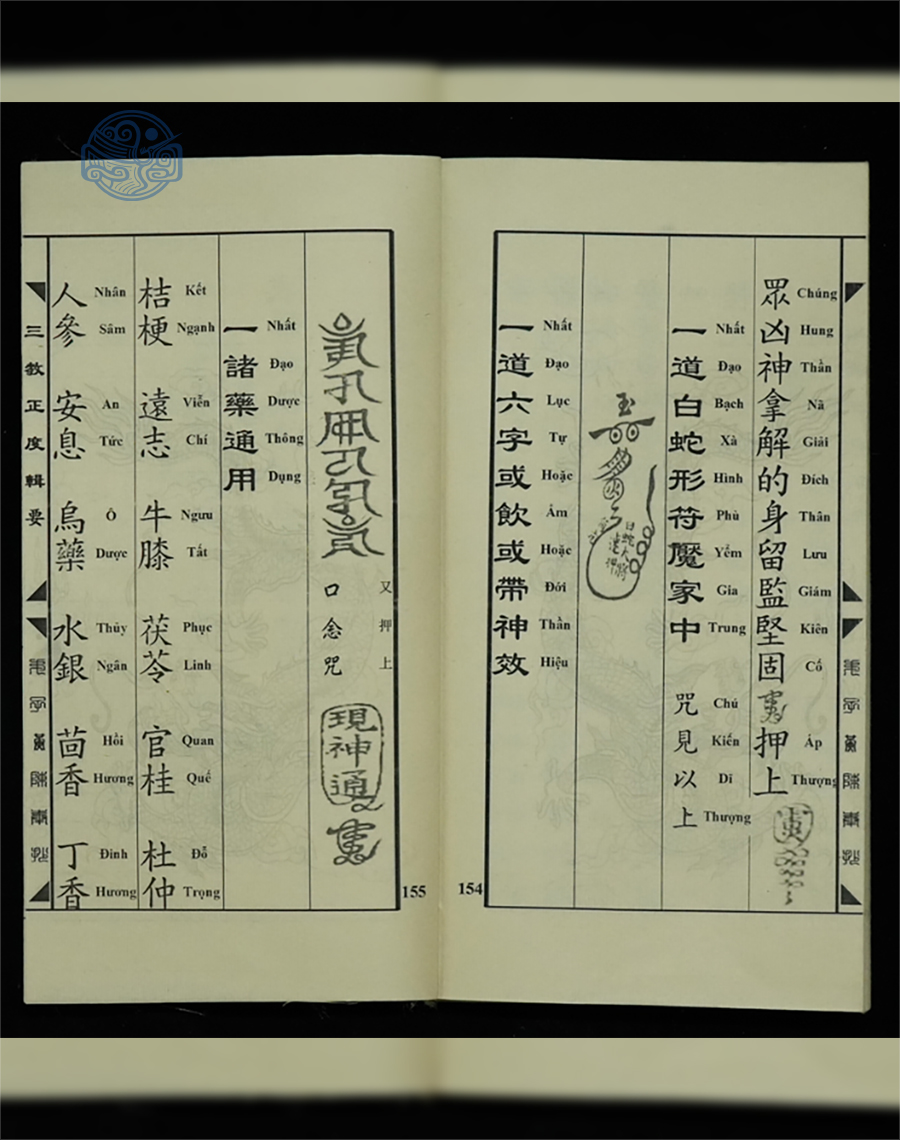 眾凶神拿解的身留監堅固
押上
Chúng Hung Thần Nã Giải Đích Thân Lưu Giám Kiên Cố
Áp Thượng
一道白蛇形符魘家中 咒見以上
Nhất Đạo Bạch Xà Hình Phù Yểm Gia Trung Chú Kiến Dĩ Thượng
玉
白蛇大將
一道六字或飲或帶神效
Nhất Đạo Lục Tự Hoặc Ẩm Hoặc Đới Thần Hiệu
154
155
又押上
口念咒
現神通
一諸藥通用
Nhất Đạo Dược Thông Dụng
桔梗 遠志 牛膝 茯苓 官桂 杜仲
Kết Ngạnh Viễn Chí Ngưu Tất Phục Linh Quan Quế Đỗ Trọng
人參 安息 烏藥 水銀 茴香 丁香
Nhân Sâm An Tức Ô Dược Thủy Ngân Hồi Hương Đinh Hương
三教正度輯要